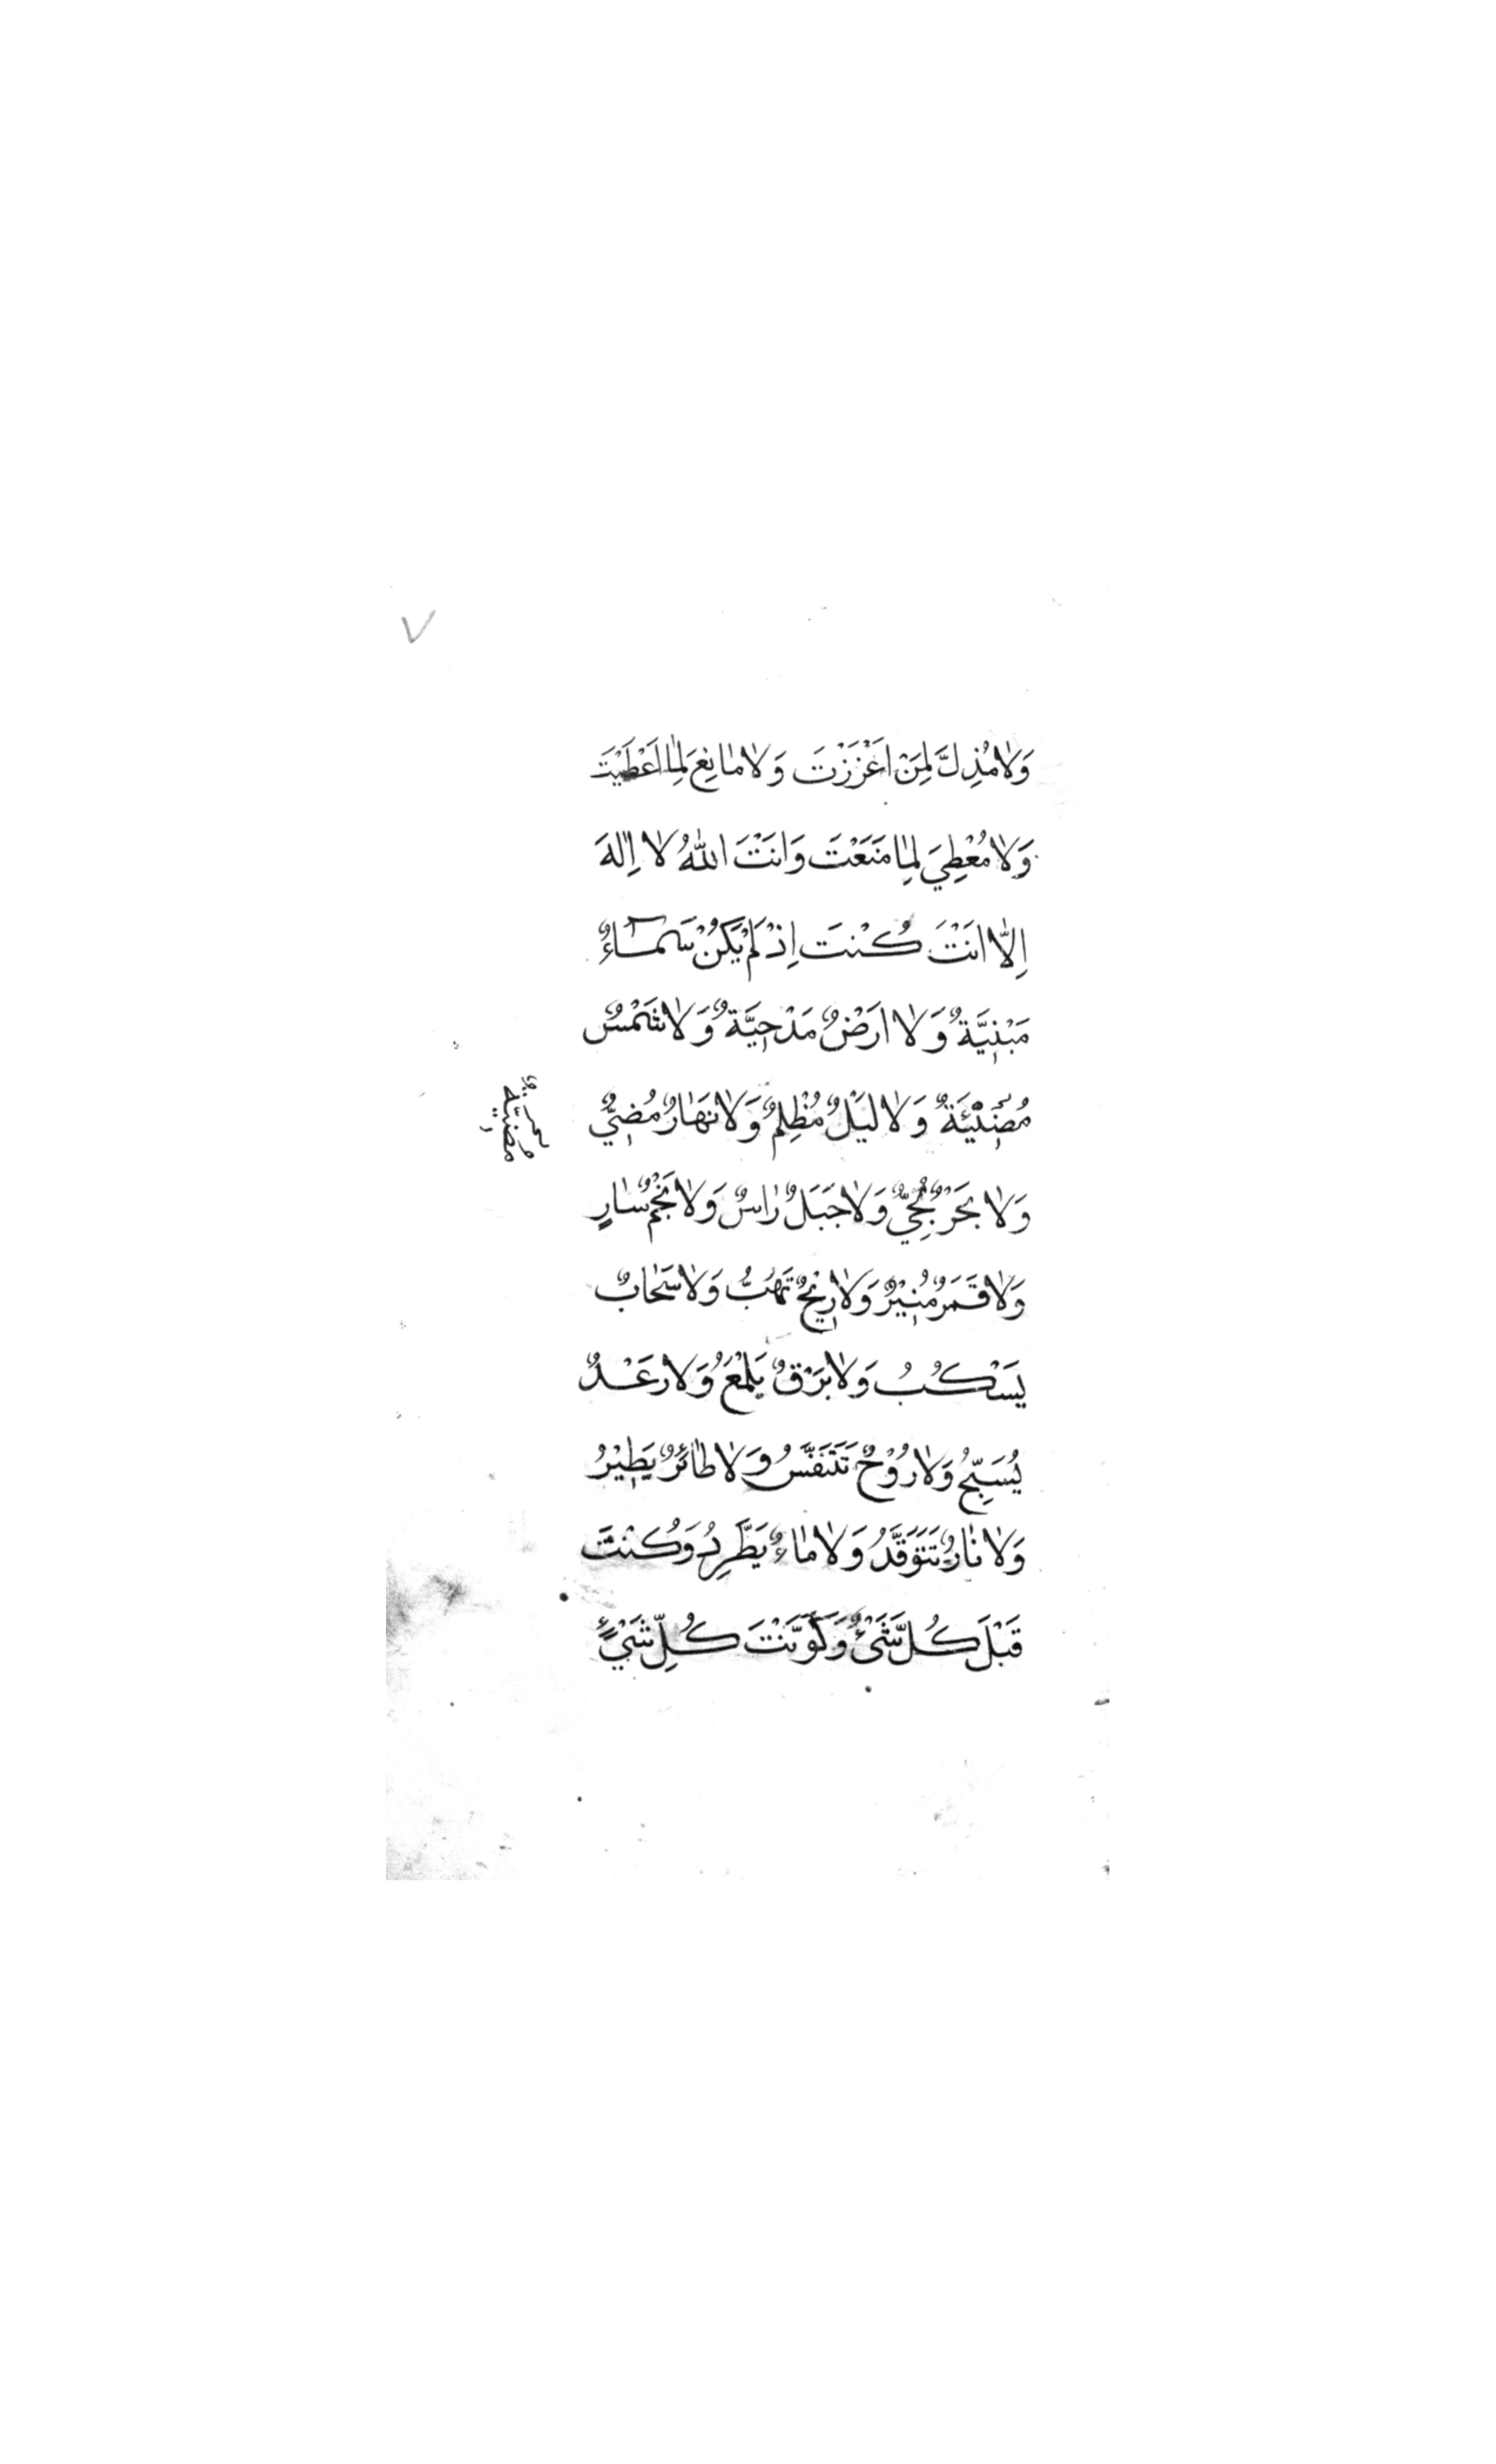 ٧
وَلَا مُذِلَّ لِمَنْ اَعْزَزْتَ وَلَا مَانِعَ لِمَا اَعْطَيْتَ
وَلَا مُعْطِيَ لِمَا مَنَعْتَ وَاَنْتَ اللّٰهُ لَا اِلٰهَ
اِلَّا اَنْتَ كُنْتَ اِذْ لَمْ يَكُنْ سَمَآءٌ
مَبْنِيَّةٌ وَلَا اَرْضٌ مَدْحِيَّةٌ وَلَا شَمْسٌ
مُضِيْئَةٌ وَلَا لَيْلٌ مُظْلِمٌ وَلَا نَهَارٌ مُضِيٌّ
وَلَا بَحْرٌ لُجِّيٌّ وَلَا جَبَلٌ رَاسٌ وَلَا نَجْمٌ سَارٍ
وَلَا قَمَرٌ مُنِيْرٌ وَلَا رِيْحٌ تَهُبُّ وَلَا سَحَابٌ
يَسْكُبُ وَلَا بَرْقٌ يَلْمَعُ وَلَا رَعْدٌ
يُسَبِّحُ وَلَا رُوْحٌ تَتَنَفَّسُ وَلَا طَائِرٌ يَطِيْرُ
وَلَا نَارٌ تَتَوَقَّدُ وَلَا مَاءٌ يَطَّرِدُ وَكُنْتَ
قَبْلَ كُلِّ شَيْءٍ وَكَوَّنْتَ كُلَّ شَيْءٍ